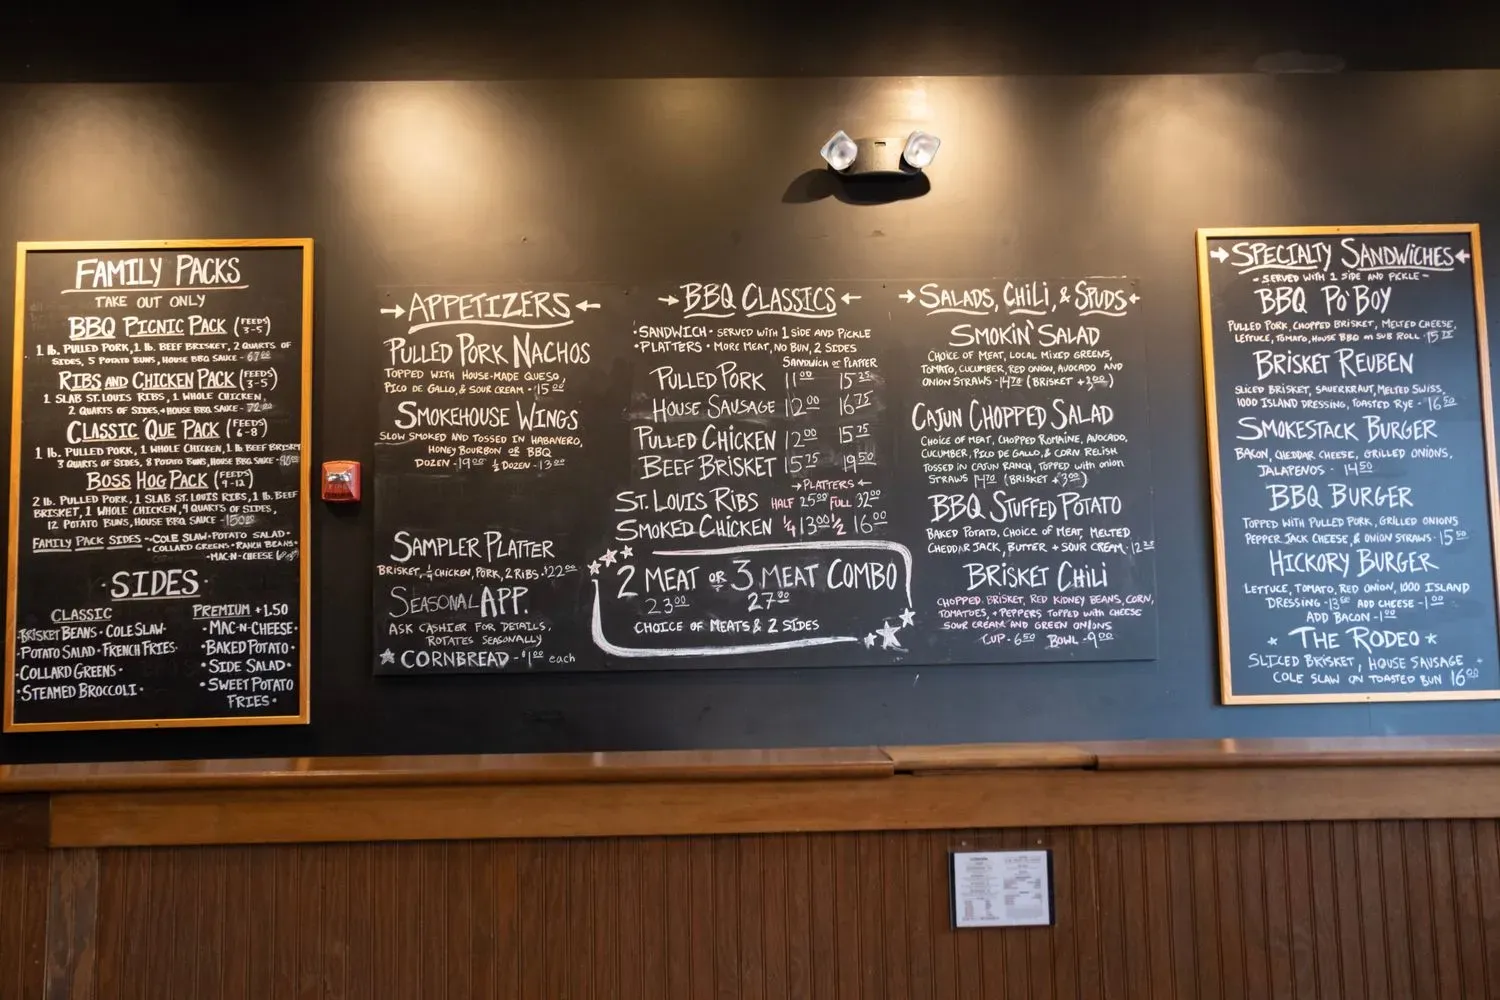 FAMILY PACKS
TAKE OUT ONLY
BBQ PICNIC PACK (FEEDS 3-5)
1 lb. PULLED PORK, 1 lb. BEEF BRISKET, 2 QUARTS OF
SIDES, 5 POTATO BUNS, HOUSE BBQ SAUCE - 67.00
RIBS AND CHICKEN PACK (FEEDS 3-5)
1 SLAB ST. LOUIS RIBS, 1 WHOLE CHICKEN,
2 QUARTS OF SIDES, + HOUSE BBQ SAUCE - 72.00
CLASSIC 'QUE PACK (FEEDS 6-8)
1 lb. PULLED PORK, 1 WHOLE CHICKEN, 1 lb BEEF BRISKET
3 QUARTS OF SIDES, 8 POTATO BUNS, HOUSE BBQ SAUCE -
BOSS HOG PACK (FEEDS 9-12)
2 lb. PULLED PORK, 1 SLAB ST. LOUIS RIBS, 1 lb. BEEF
BRISKET, 1 WHOLE CHICKEN, 4 QUARTS OF SIDES,
12 POTATO BUNS, HOUSE BBQ SAUCE - 150.00
FAMILY PACK SIDES - COLE SLAW • POTATO SALAD •
• COLLARD GREENS • RANCH BEANS •
• MAC-N-CHEESE
• SIDES •
CLASSIC
• BRISKET BEANS • COLE SLAW •
• POTATO SALAD • FRENCH FRIES •
• COLLARD GREENS •
• STEAMED BROCCOLI •
PREMIUM +1.50
• MAC-N-CHEESE •
• BAKED POTATO •
• SIDE SALAD •
• SWEET POTATO
FRIES •
→ APPETIZERS ←
PULLED PORK NACHOS
TOPPED WITH HOUSE-MADE QUESO,
PICO DE GALLO, & SOUR CREAM - 15.00
SMOKEHOUSE WINGS
SLOW SMOKED AND TOSSED IN HABANERO,
HONEY BOURBON OR BBQ
DOZEN - 19.00 ½ DOZEN - 13.00
SAMPLER PLATTER
BRISKET, ¼ CHICKEN, PORK, 2 RIBS - $22.00
SEASONAL APP.
ASK CASHIER FOR DETAILS,
ROTATES SEASONALLY
★ CORNBREAD - $1.00 each
→ BBQ CLASSICS ←
• SANDWICH • SERVED WITH 1 SIDE AND PICKLE
• PLATTERS • MORE MEAT, NO BUN, 2 SIDES
SANDWICH OR PLATTER
PULLED PORK 11.00 15.25
HOUSE SAUSAGE 12.00 16.75
PULLED CHICKEN 12.00 15.75
BEEF BRISKET 15.75 19.50
→ PLATTERS ←
ST. LOUIS RIBS HALF 25.00 FULL 32.00
SMOKED CHICKEN ¼ 13.00 ½ 16.00
2 MEAT OR 3 MEAT COMBO
23.00 27.00
CHOICE OF MEATS & 2 SIDES
→ SALADS, CHILI, & SPUDS ←
SMOKIN' SALAD
CHOICE OF MEAT, LOCAL MIXED GREENS,
TOMATO, CUCUMBER, RED ONION, AVOCADO AND
ONION STRAWS - 14.70 (BRISKET +3.00)
CAJUN CHOPPED SALAD
CHOICE OF MEAT, CHOPPED ROMAINE, AVOCADO,
CUCUMBER, PICO DE GALLO, & CORN RELISH
TOSSED IN CAJUN RANCH, TOPPED WITH ONION
STRAWS 14.70 (BRISKET +3.00)
BBQ STUFFED POTATO
BAKED POTATO, CHOICE OF MEAT, MELTED
CHEDDAR JACK, BUTTER + SOUR CREAM - 12.25
BRISKET CHILI
CHOPPED BRISKET, RED KIDNEY BEANS, CORN,
TOMATOES, + PEPPERS TOPPED WITH CHEESE
SOUR CREAM AND GREEN ONIONS
CUP - 6.50 BOWL - 9.00
→ SPECIALTY SANDWICHES ←
- SERVED WITH 1 SIDE AND PICKLE -
BBQ PO'BOY
PULLED PORK, CHOPPED BRISKET, MELTED CHEESE,
LETTUCE, TOMATO, HOUSE BBQ ON SUB ROLL - 15.75
BRISKET REUBEN
SLICED BRISKET, SAUERKRAUT, MELTED SWISS,
1000 ISLAND DRESSING, TOASTED RYE - 16.50
SMOKESTACK BURGER
BACON, CHEDDAR CHEESE, GRILLED ONIONS,
JALAPENOS - 14.50
BBQ BURGER
TOPPED WITH PULLED PORK, GRILLED ONIONS
PEPPER JACK CHEESE, & ONION STRAWS - 15.50
HICKORY BURGER
LETTUCE, TOMATO, RED ONION, 1000 ISLAND
DRESSING - 13.50 ADD CHEESE - 1.00
ADD BACON - 1.00
★ THE RODEO ★
SLICED BRISKET, HOUSE SAUSAGE
COLE SLAW ON TOASTED BUN 16.00